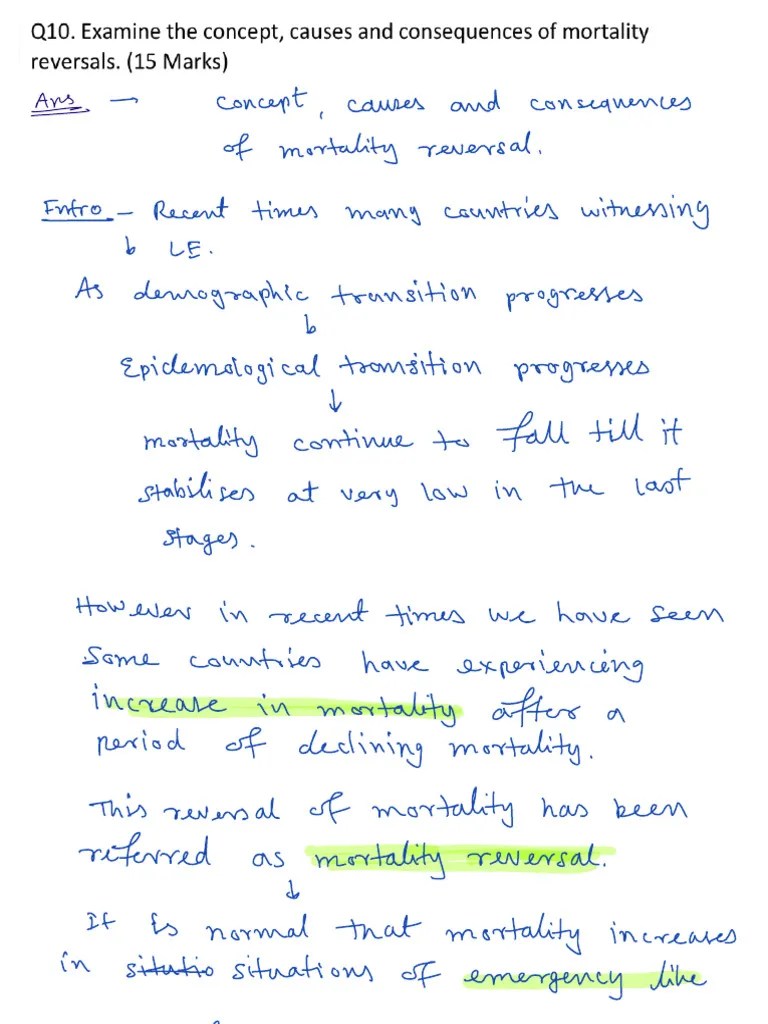 Q10. Examine the concept, causes and consequences of mortality
reversals. (15 Marks)
Ans → concept, causes and consequences
of mortality reversal.
Intro - Recent times many countries witnessing
↓ LE.
As demographic transition progresses
↓
Epidemological transition progresses
↓
mortality continue to fall till it
stabilises at very low in the last
stages.
However in recent times we have seen
Some countries have experiencing
increase in mortality after a
period of declining mortality.
This reversal of mortality has been
referred as mortality reversal.
↓
It is normal that mortality increases
in situtio situations of emergency like